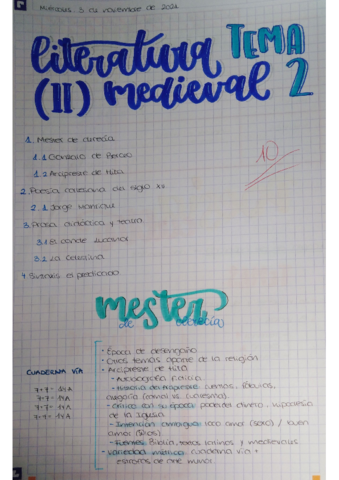 Miércoles, 3 de noviembre de 2021
literatura TEMA
(II) medieval 2
1. Mester de clerecía
1.1 Gonzalo de Berceo
1.2 Arcipreste de Hita
2. Poesía cortesana del siglo XV
2.1 Jorge Manrique
3. Prosa didáctica y teatro
3.1 El conde Lucanor
3.2 La Celestina
4. Sintaxis: el predicado
10
mester
de clerecía
- Época de
- Otros temas aparte de la religión
- Arcipreste de Hita
- Autobiografía
CUADERNA VÍA
7+7= 14A
7+7= 14A
7+7= 14A
7+7= 14A
- Historia del Arcipreste: cuentos, fábulas,
alegoría (carnal vs cuaresma).
- Crítica con su época: poder del dinero, hipocresía
de la iglesia
- Intención ambigua: loco amor (sexo) / buen
amor (Dios).
- Fuentes: Biblia, textos latinos y medievales
- variedad métrica: cuaderna vía +
estrofas de arte menor.